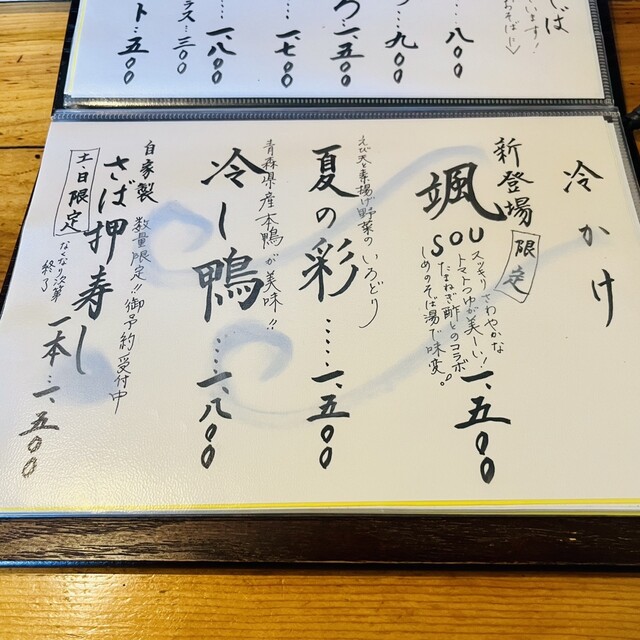 じは
います!
おそばじ
…八〇〇
…九〇〇
ろ…一、五〇〇
…一、七〇〇
…一、八〇〇
ラス…三〇〇
ト…五〇〇
冷かけ
新登場
限定
颯
SOU
スッキリさわやかな
トマトつゆが美しい!
たまねぎ酢とのコラボ
しめのそば湯で味変。
一、五〇〇
えび天と素揚げ野菜のいろどり
夏の彩……一、五〇〇
青森県産本鴨が美味!!
冷し鴨……一、八〇〇
自家製
数量限定!!御予約受付中
さば押寿し
一本…一、五〇〇
土日限定
なくなり次第
終了